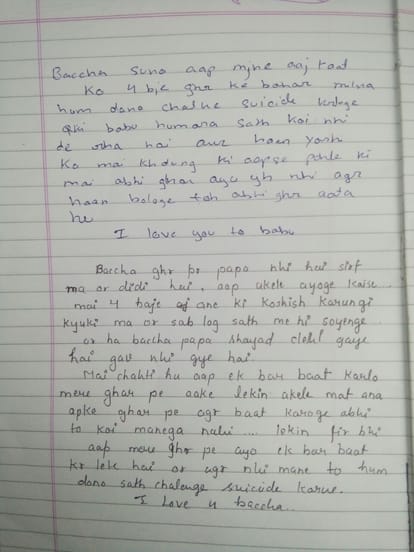 Baccha suno aap mjhe aaj raat
Ko 4 bje ghr ke bahar milna
hum dono chalke suicide krlege
qki babu humara sath koi nhi
de rha hai aur haan Yash
Ko mai khdunga ki aapse phle ki
mai abhi ghar ayu yh nhi agr
haan bologe toh abhi ghr aata
hu
I love you to babu
Baccha ghr pr papa nhi hai sirf
ma or didi hai, aap akele ayoge kaise..
mai 4 baje ane ki koshish karungi
kyuki ma or sab log sath me hi soyenge
or ha baccha papa shayad delhi gaye
hai gav nhi gye hai
Mai chahti hu aap ek bar baat karlo
mere ghar pe aake lekin akele mat ana
apke ghar pe agr baat karoge abhi
to koi manega nahi .... lekin fir bhi
aap mere ghr pe ayo ek bar baat
kr lete hai or agr nhi mane to hum
dono sath chalenge suicide karne.
I Love u baccha..